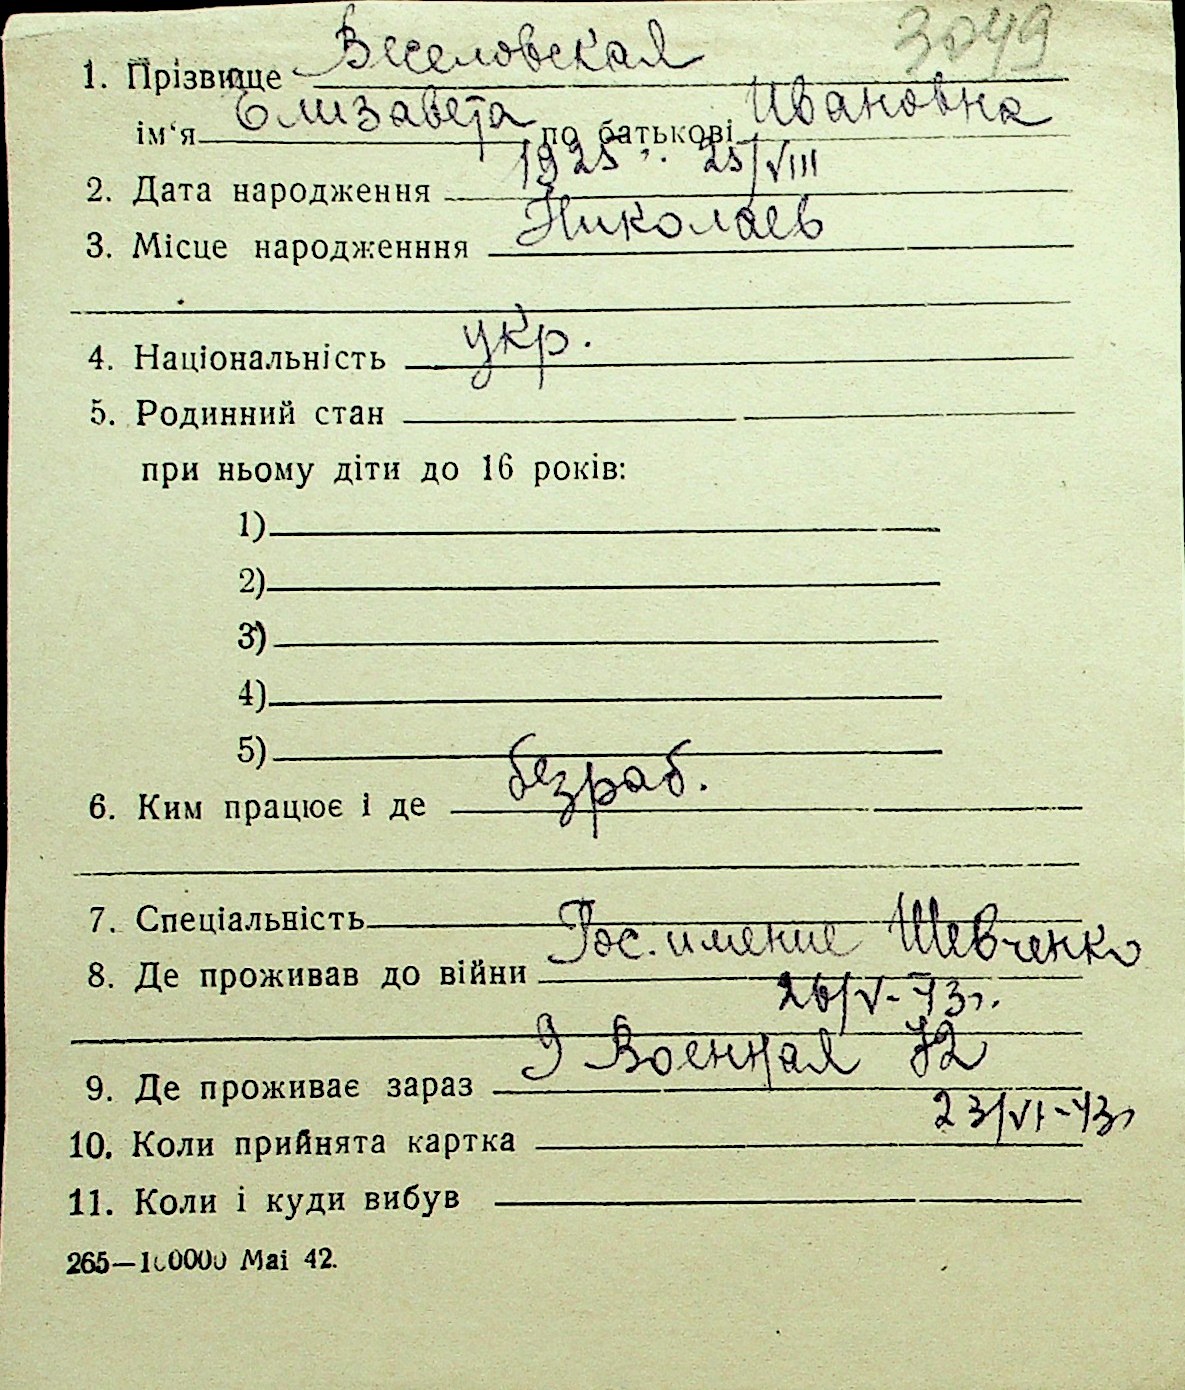 3049
1. Прізвище Веселовская
ім‘я Елизавета по батькові Ивановна
2. Дата народження 1925 г. 25/VIII
3. Місце народженння Николаев
4. Національність укр.
5. Родинний стан
при ньому діти до 16 років:
1)
2)
3)
4)
5)
6. Ким працює і де безраб.
7. Спеціальність
8. Де проживав до війни Гос. имение Шевченко
26/V-43г.
9. Де проживає зараз 9 Военная 72
23/VI-43г
10. Коли прийнята картка
11. Коли і куди вибув
265—100000 Mai 42.